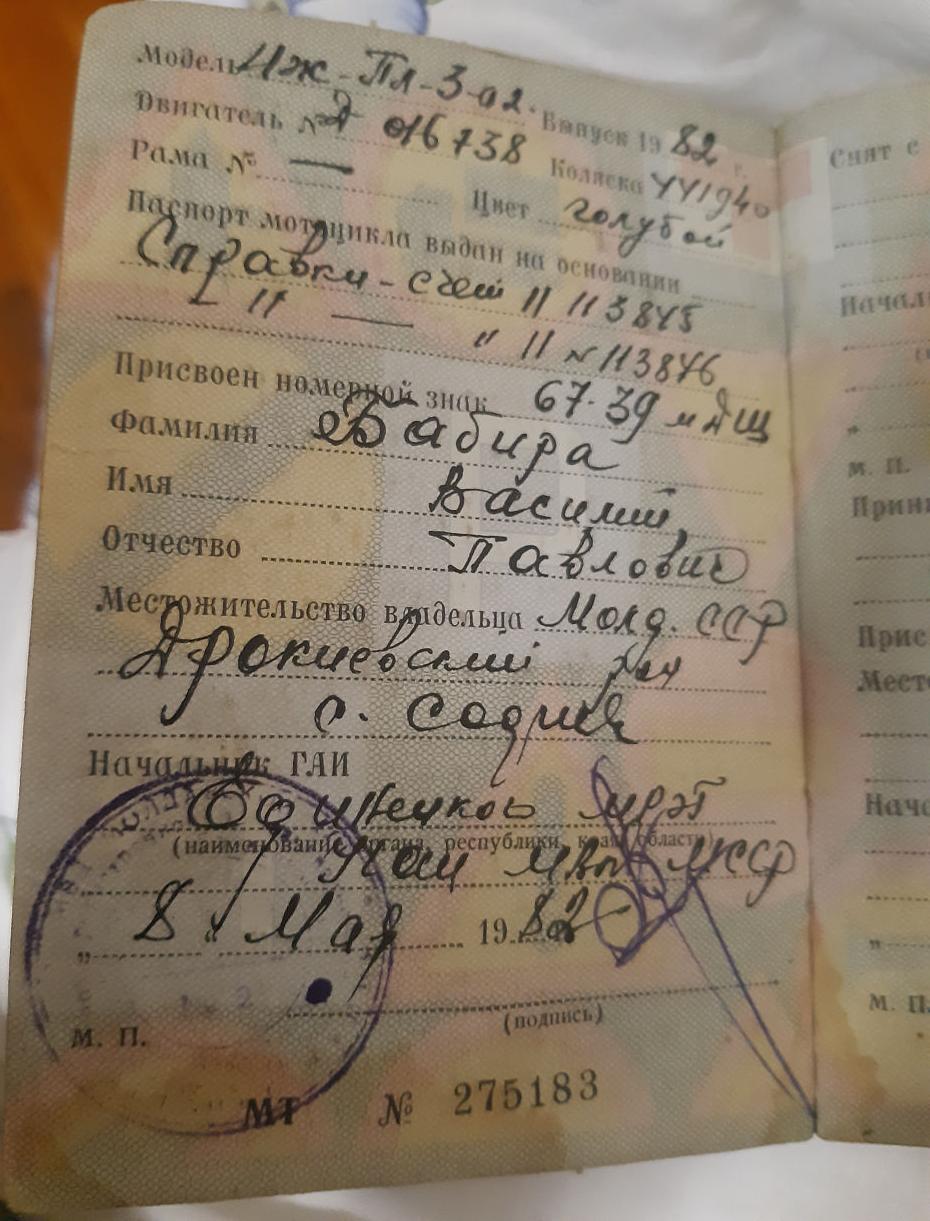 Модель Иж-Пл-3-02. Выпуск 19 82 г.
Двигатель № Д 016738 Коляска 441940
Рама № — Цвет голубой
Паспорт мотоцикла выдан на основании
Справки-счет 11 113845
— " — " 11 № 113846
Присвоен номерной знак 67-39 мдщ
Фамилия Бабира
Имя Василий
Отчество Павлович
Местожительство владельца Молд. ССР
Дрокиевский р-н
с. София
Начальник ГАИ
МРЭТ
(наименование органа, республики, края, области)
МВД МССР
„ 8 " Мая 1982
(подпись)
М. П.
МТ № 275183
Снят с
М. П.
М. П.